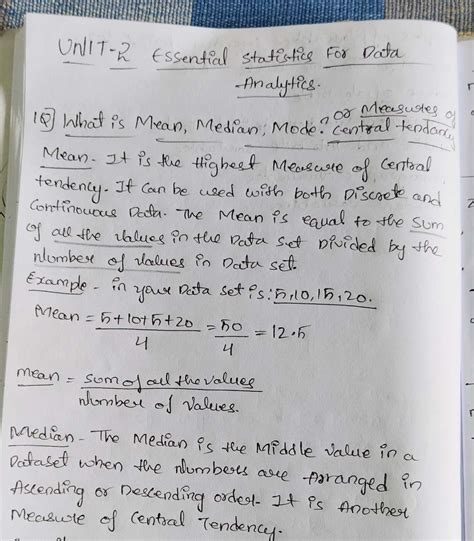 UNIT-2 Essential Statistics For Data
Analytics.
1Q] What is Mean, Median, Mode? or Measures of
Central tendancy
Mean - It is the Highest Measure of Central
tendency. It can be used with both Discrete and
Continouous Data. The Mean is equal to the sum
of all the values in the Data set Divided by the
Number of values in Data set.
Example - in your Data set is: 5,10,15,20.
Mean = 5+10+5+20/4 = 50/4 = 12.5
mean = sum of all the values/Number of Values.
Median - The Median is the Middle value in a
Dataset when the Numbers are Arranged in
Ascending or Descending order. It is Another
Measure of Central Tendency.